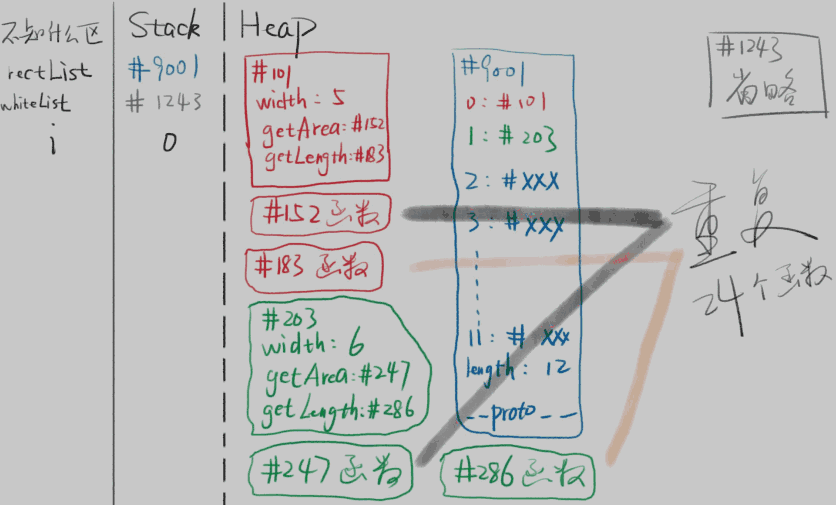 不知什么区
Stack
Heap
rectList
#9001
whiteList
#1243
i
0
#101
width: 5
getArea:#152
getLength:#183
#152 函数
#183 函数
#203
width: 6
getArea:#247
getLength:#286
#247 函数
#9001
0: #101
1: #203
2: #xxx
3: #xxy
11: # xxx
length: 12
__proto__
#286 函数
#1243
省略
重复
24个函数